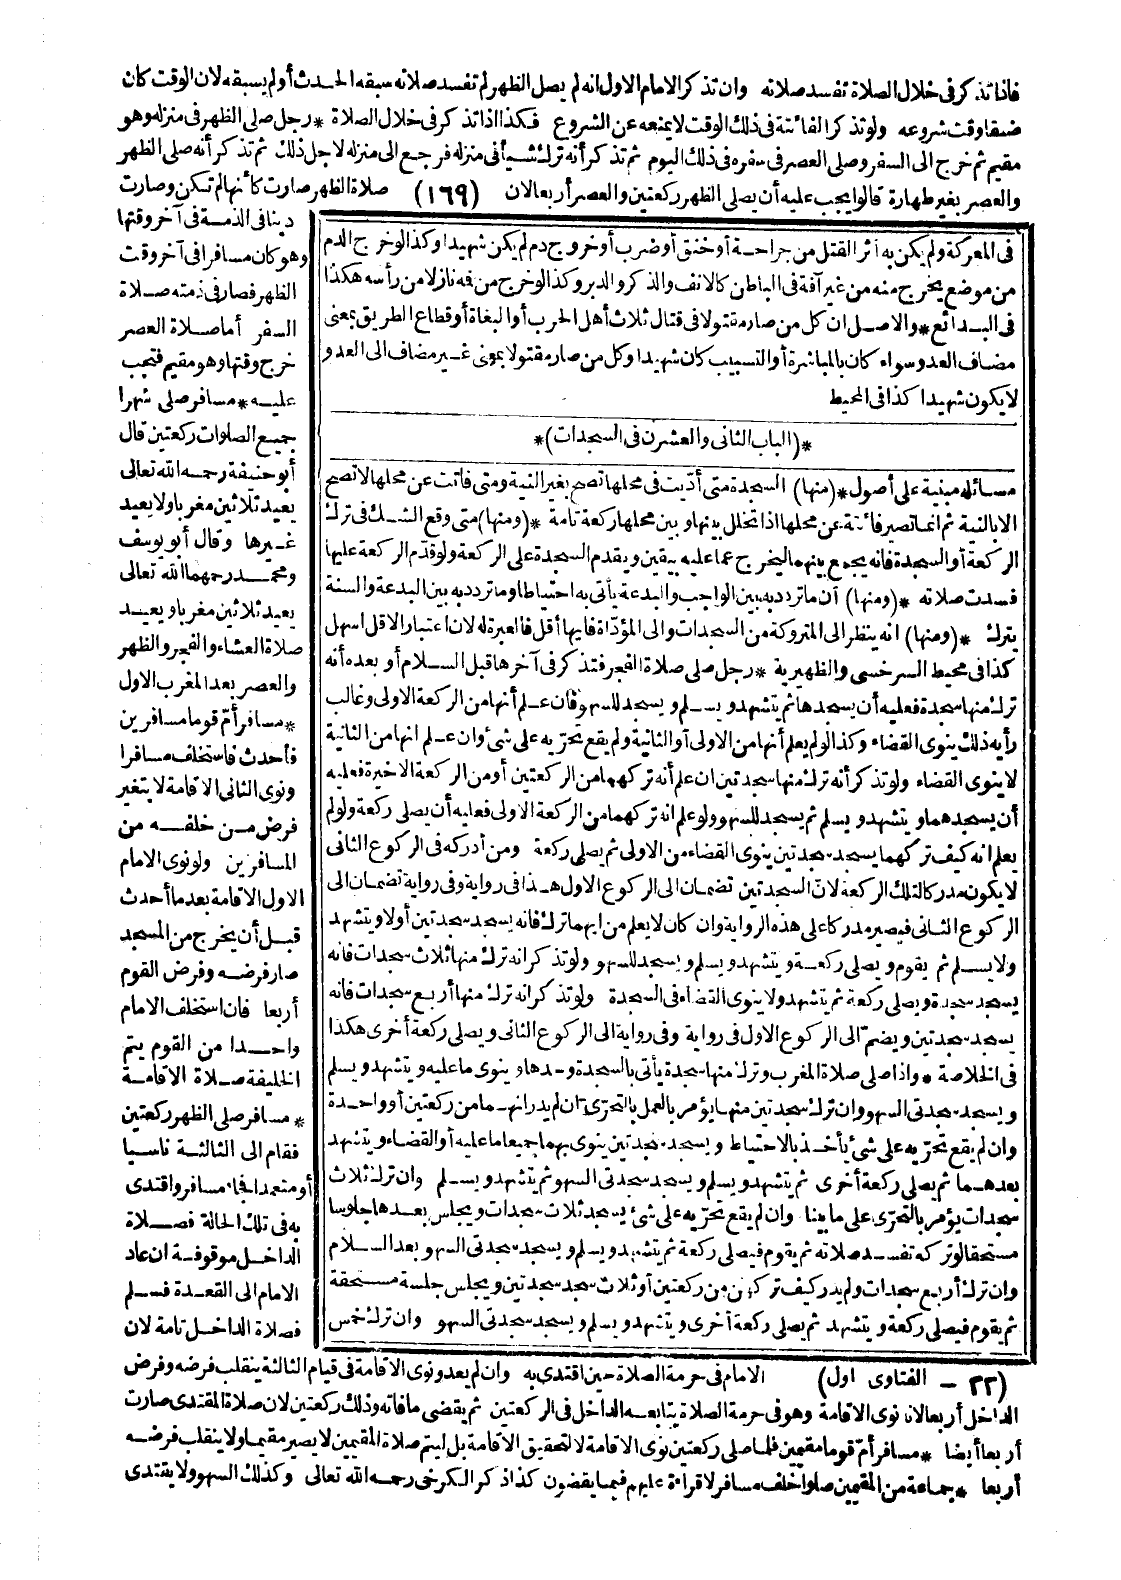 فاذا تذكر فى خلال الصلاة تفسد صلاته وان تذكر الامام الاول انه لم يصل الظهر لم تفسد صلاته سبقه الحدث أولم يسبقه لان الوقت كان
ضيقا وقت شروعه ولو تذكر الفائتة فى ذلك الوقت لا يمنعه عن الشروع فكذا اذا تذكر فى خلال الصلاة * رجل صلى الظهر فى منزله وهو
مقيم ثم خرج الى السفر وصلى العصر فى سفره فى ذلك اليوم ثم تذكر أنه ترك شيأ فى منزله فرجع الى منزله لاجل ذلك ثم تذكر أنه صلى الظهر
والعصر بغير طهارة قالوا يجب عليه أن يصلى الظهر ركعتين والعصر أربعا لان (١٦٩) صلاة الظهر صارت كأنها لم تكن وصارت
دينا فى الذمة فى آخر وقتها
وهو كان مسافرا فى آخر وقت
الظهر فصار فى ذمته صلاة
السفر أما صلاة العصر
خرج وقتها وهو مقيم فتجب
عليه * مسافر صلى شهرا
جميع الصلوات ركعتين قال
أبو حنيفة رحمه الله تعالى
يعيد ثلاثين مغربا ولا يعيد
غيرها وقال أبو يوسف
ومحمد رحمهما الله تعالى
يعيد ثلاثين مغربا ويعيد
صلاة العشاء والفجر والظهر
والعصر بعد المغرب الاول
* مسافر أم قوما مسافرين
فأحدث فاستخلف مسافرا
ونوى الثانى الاقامة لا يتغير
فرض من خلفه من
المسافرين ولو نوى الامام
الاول الاقامة بعدما أحدث
قبل أن يخرج من المسجد
صار فرضه وفرض القوم
أربعا فان استخلف الامام
واحدا من القوم يتم
الخليفة صلاة الاقامة
* مسافر صلى الظهر ركعتين
فقام الى الثالثة ناسيا
أو متعمدا فجاء مسافر واقتدى
به فى تلك الحالة فصلاة
الداخل موقوفة ان عاد
الامام الى القعدة فسلم
فصلاة الداخل تامة لان
فى المعركة ولم يكن به أثر القتل من جراحة أو خنق أو ضرب أو خروج دم لم يكن شهيدا وكذا لو خرج الدم
من موضع يخرج منه من غير آفة فى الباطن كالانف والذكر والدبر وكذا لو خرج من فمه نازلا من رأسه هكذا
فى البدائع * والاصل ان كل من صار مقتولا فى قتال ثلاث أهل الحرب أو البغاة أو قطاع الطريق بمعنى
مضاف العدو سواء كان بالمباشرة أو التسبيب كان شهيدا وكل من صار مقتولا بمعنى غير مضاف الى العدو
لا يكون شهيدا كذا فى المحيط
*(الباب الثانى والعشرون فى السجدات)*
مسائله مبنية على أصول * (منها) السجدة متى أديت فى محلها تصح بغير النية ومتى فاتت عن محلها لا تصح
الا بالنية ثم انما تصير فائتة عن محلها اذا تخلل بينها وبين محلها ركعة تامة * (ومنها) متى وقع الشك فى ترك
الركعة أو السجدة فانه يجمع بينهما ليخرج عما عليه بيقين ويقدم السجدة على الركعة ولو قدم الركعة عليها
فسدت صلاته * (ومنها) أن ما تردد به بين الواجب والبدعة يأتى به احتياطا وما تردد به بين البدعة والسنة
يترك * (ومنها) انه ينظر الى المتروكة من السجدات والى المؤداة فايها أقل فالعبرة له لان اعتبار الاقل اسهل
كذا فى محيط السرخسى والظهيرية * رجل صلى صلاة الفجر فتذكر فى آخرها قبل السلام أو بعده أنه
ترك منها سجدة فعليه أن يسجدها ثم يتشهد ويسلم ويسجد للسهو فان علم أنها من الركعة الاولى وغالب
رأيه ذلك ينوى القضاء وكذا لو لم يعلم أنها من الاولى أو الثانية ولم يقع تحريه على شئ وان علم انها من الثانية
لا ينوى القضاء ولو تذكر أنه ترك منها سجدتين ان علم أنه تركهما من الركعتين أو من الركعة الاخيرة فعليه
أن يسجدهما ويتشهد ويسلم ثم يسجد للسهو ولو علم انه تركهما من الركعة الاولى فعليه أن يصلى ركعة ولو لم
يعلم انه كيف تركهما يسجد سجدتين ينوى القضاء من الاولى ثم يصلى ركعة ومن أدركه فى الركوع الثانى
لا يكون مدركا لتلك الركعة لان السجدتين تضمان الى الركوع الاول هذا فى رواية وفى رواية تضمان الى
الركوع الثانى فيصير مدركا على هذه الرواية وان كان لا يعلم من ايهما ترك فانه يسجد سجدتين أولا ويتشهد
ولا يسلم ثم يقوم ويصلى ركعة ويتشهد ويسلم ويسجد للسهو ولو تذكر انه ترك منها ثلاث سجدات فانه
يسجد سجدة ويصلى ركعة ثم يتشهد ولا ينوى القضاء فى السجدة ولو تذكر انه ترك منها أربع سجدات فانه
يسجد سجدتين ويضم الى الركوع الاول فى رواية وفى رواية الى الركوع الثانى ويصلى ركعة أخرى هكذا
فى الخلاصة * واذا صلى صلاة المغرب وترك منها سجدة يأتى بالسجدة وحدها وينوى ما عليه ويتشهد ويسلم
ويسجد سجدتى السهو وان ترك سجدتين منها يؤمر بالعمل بالتحرى ان لم يدر انهما من ركعتين أو واحدة
وان لم يقع تحريه على شئ يأخذ بالاحتياط ويسجد سجدتين ينوى بهما جميعا ما عليه أو القضاء ويتشهد
بعدهما ثم يصلى ركعة أخرى ثم يتشهد ويسلم ويسجد سجدتى السهو ثم يتشهد ويسلم وان ترك ثلاث
سجدات يؤمر بالتحرى على ما بينا وان لم يقع تحريه على شئ يسجد ثلاث سجدات ويجلس بعدها جلوسا
مستحقا لو تركه تفسد صلاته ثم يقوم فيصلى ركعة ثم يتشهد ويسلم ويسجد سجدتى السهو بعد السلام
وان ترك أربع سجدات ولم يدر كيف ترك من ركعتين أو ثلاث سجد سجدتين ويجلس جلسة مستحقة
ثم يقوم فيصلى ركعة ويتشهد ثم يصلى ركعة أخرى ويتشهد ويسلم ويسجد سجدتى السهو وان ترك خمس
(٢٢ - الفتاوى اول) الامام فى حرمة الصلاة حين اقتدى به وان لم يعد ونوى الاقامة فى قيام الثالثة ينقلب فرضه وفرض
الداخل أربعا لانه نوى الاقامة وهو فى حرمة الصلاة يتابعه الداخل فى الركعتين ثم يقضى ما فاته وذلك ركعتين لان صلاة المقتدى صارت
أربعا أيضا * مسافر أم قوما مقيمين فلما صلى ركعتين نوى الاقامة لا لتحقيق الاقامة بل ليتم صلاة المقيمين لا يصير مقيما ولا ينقلب فرضه
أربعا * جماعة من المقيمين صلوا خلف مسافر لا قراءة عليهم فيما يقضون كذا ذكر الكرخى رحمه الله تعالى وكذلك السهو ولا يقتدى